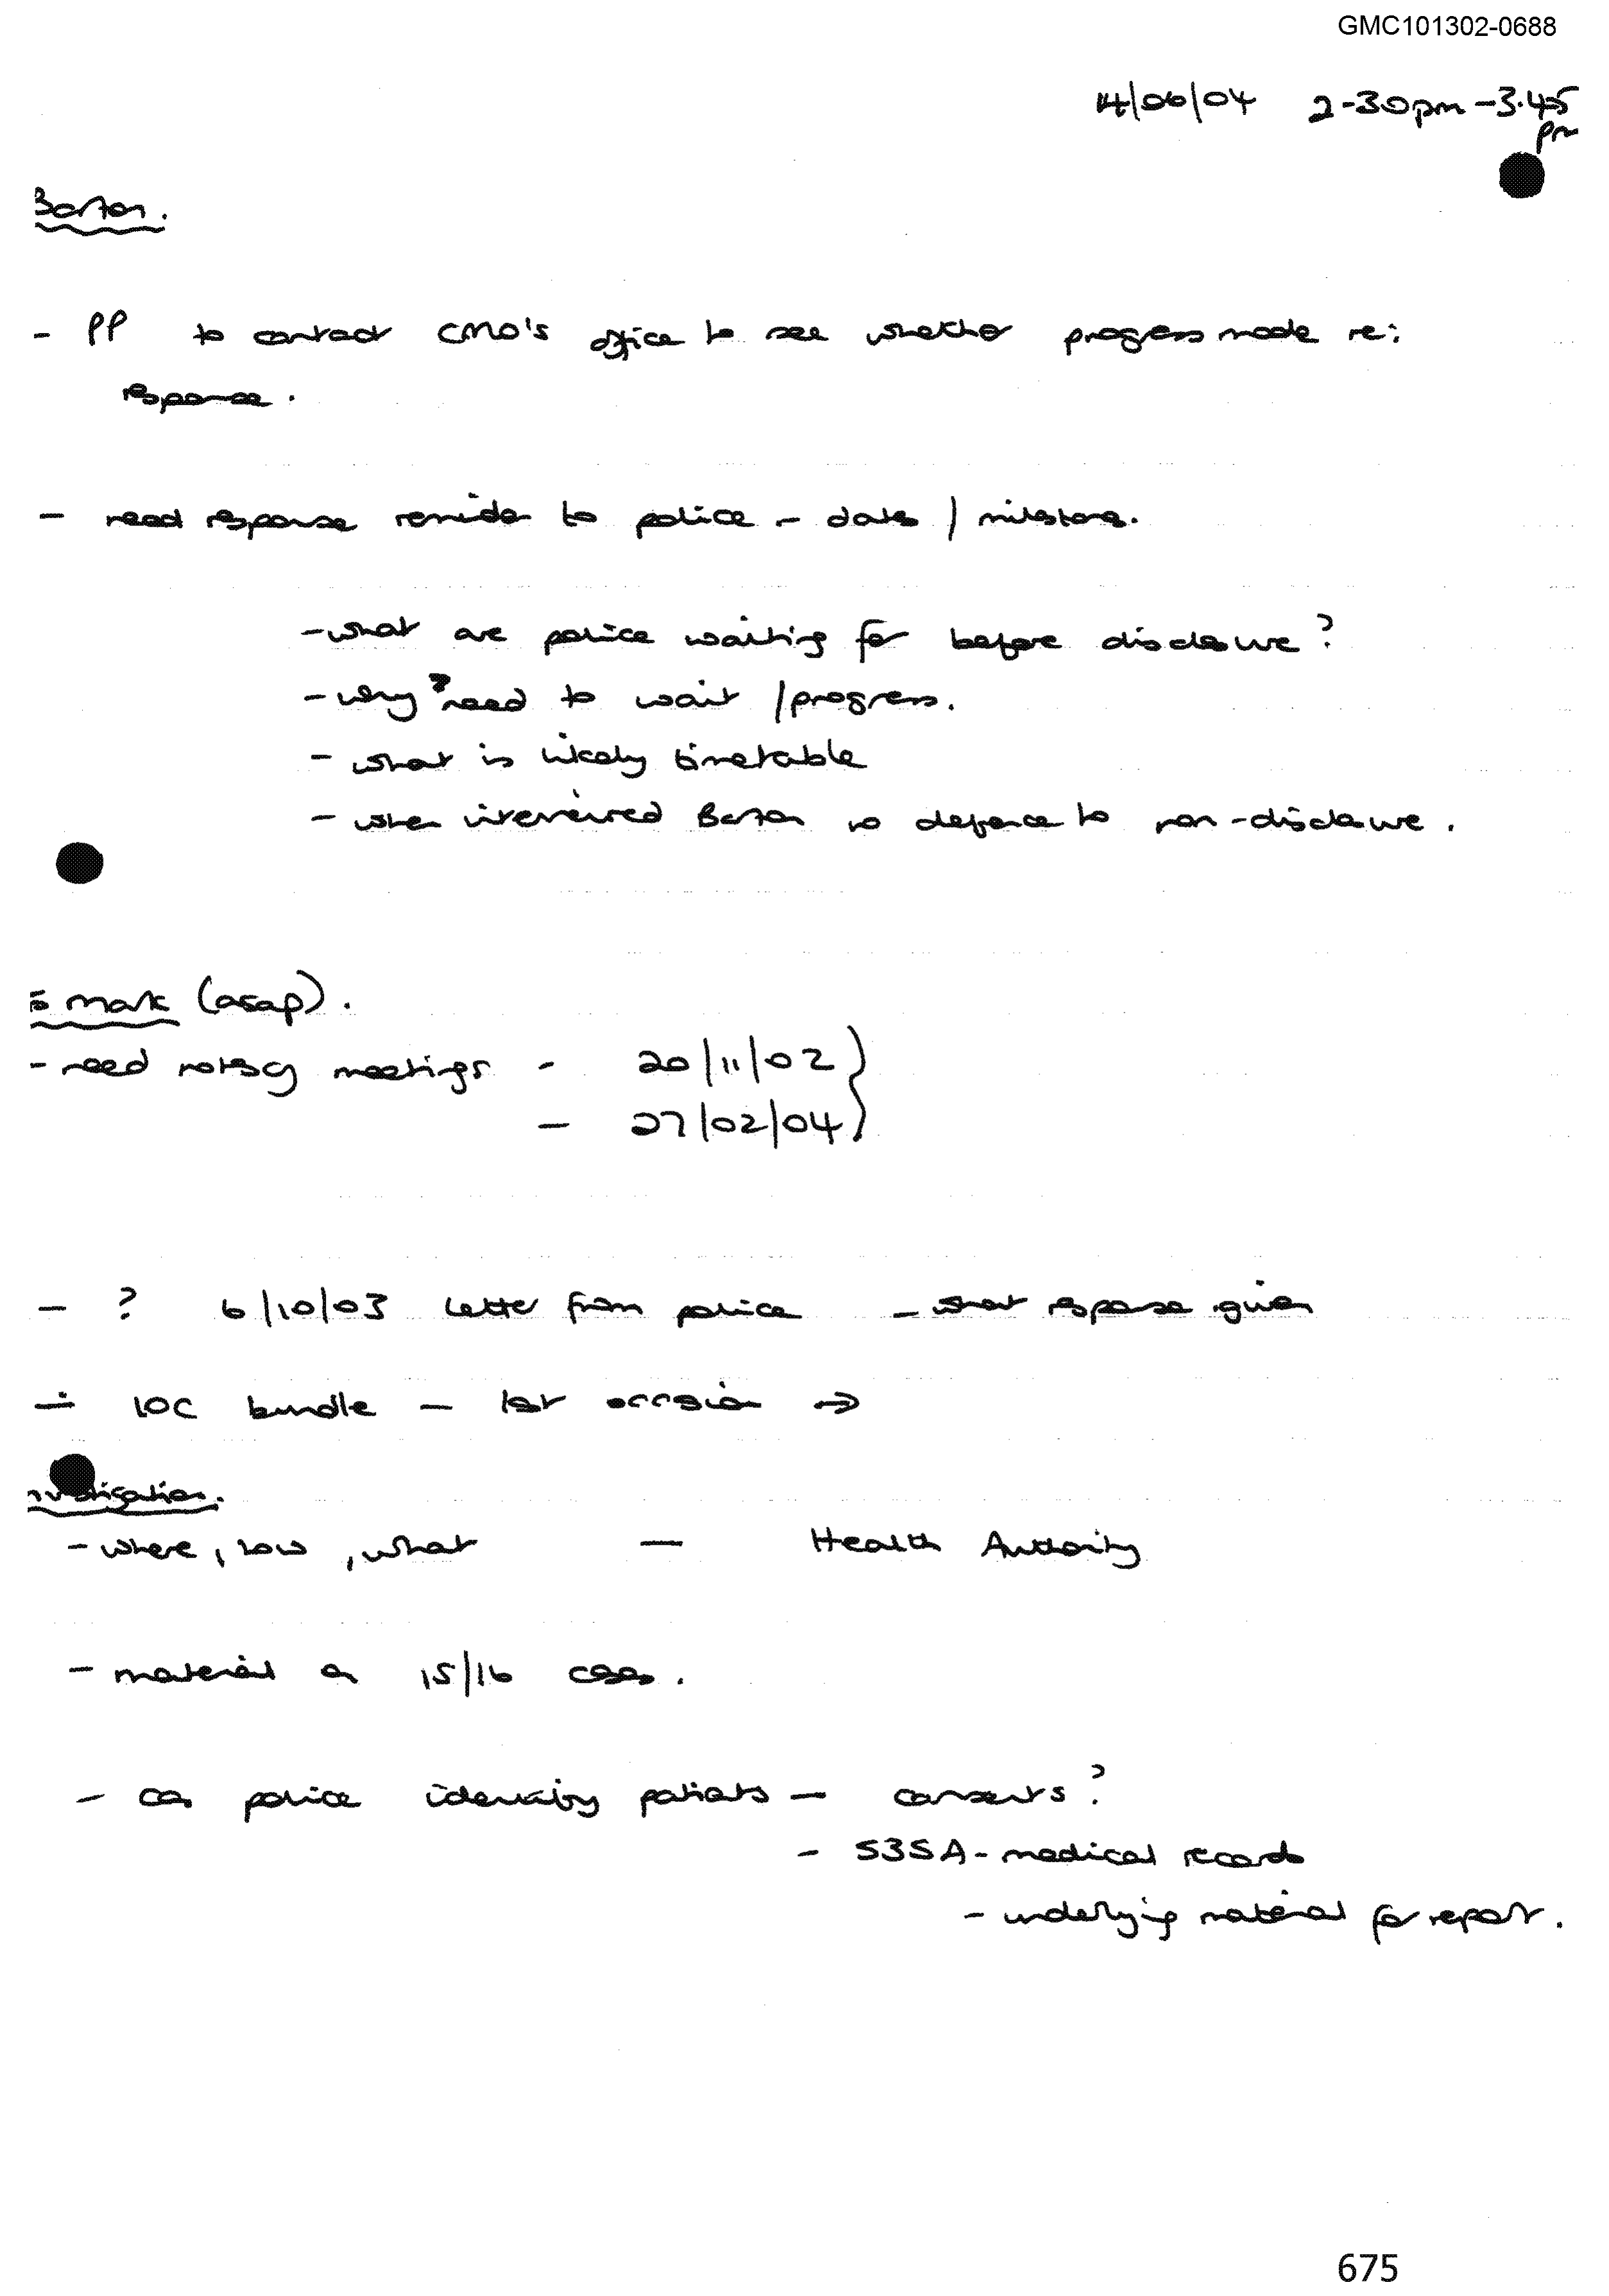 GMC101302-0688
14/06/04 2-30pm - 3.45
pm
Barton.
- PP to contact CMO's office to see whether progress made re:
response.
- need response reminder to police - dates / milestones.
- what are police waiting for before disclosure?
- why? need to wait / progress.
- what is likely timetable
- when interviewed Barton no defence to non-disclosure.
Mark (asap).
- need notes of meetings - 20/11/02
- 27/02/04
- ? 6/10/03 letter from police - what response given
- IOC bundle - last occasion →
nvestigation.
- where, how, what - Health Authority
- material on 15/16 cases.
- can police identify patients - consents?
- S35A - medical records
- underlying material for report.
675